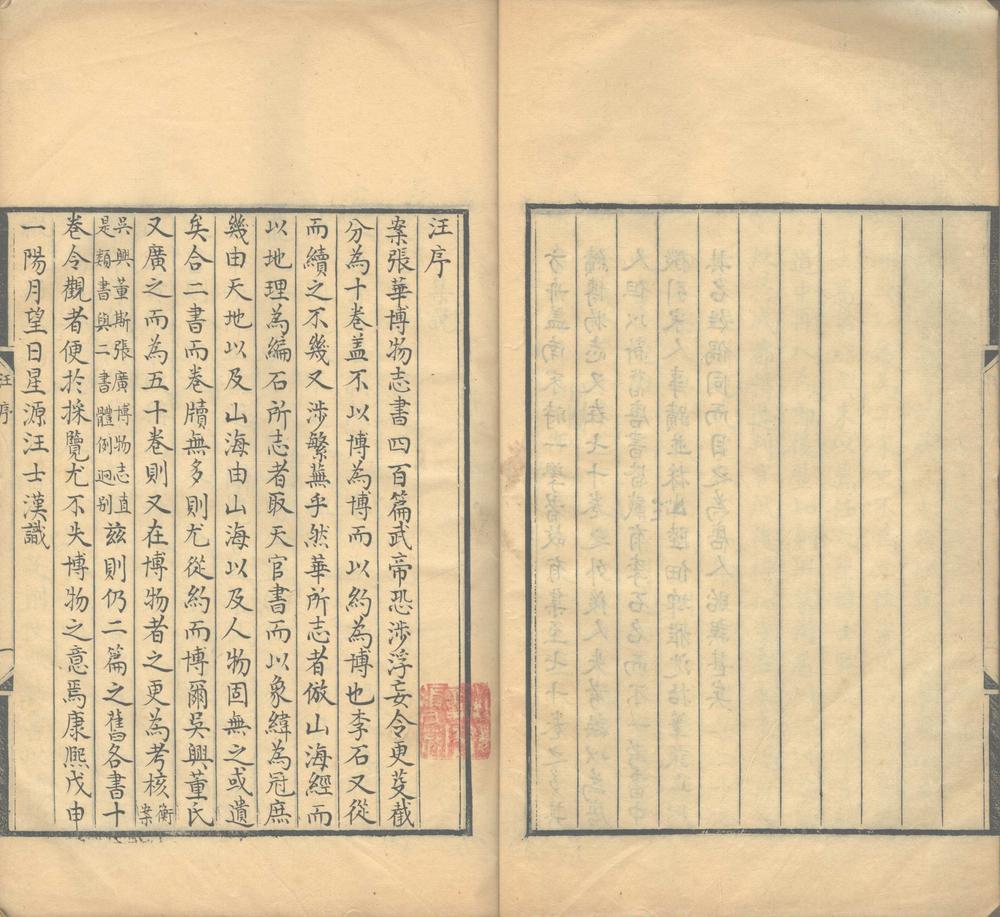 汪序
案張華博物志書四百篇武帝恐涉浮妄令更芟截
分為十卷盖不以博為博而以約為博也李石又從
而續之不幾又涉繁蕪乎然華所志者倣山海經而
以地理為編石所志者取天官書而以象緯為冠庶
幾由天地以及山海由山海以及人物固無之或遺
矣合二書而卷牘無多則尤從約而博爾吳興董氏
又廣之而為五十卷則又在博物者之更為考核衡案
吳興董斯張廣博物志直是類書與二書體例迥別茲則仍二篇之舊各書十
卷令觀者便於採覽尤不失博物之意焉康熙戊申
一陽月望日星源汪士漢識
汪序
一